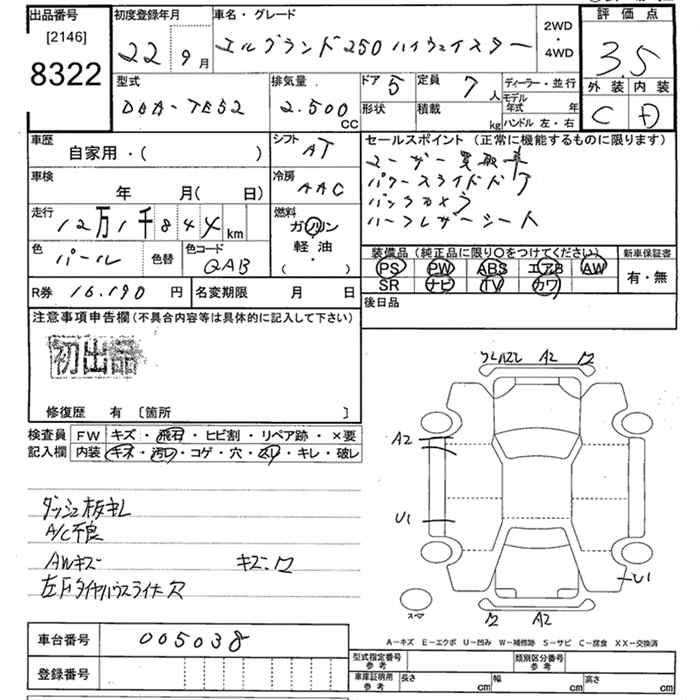 出品番号 初度登録年月 車名・グレード 2WD 評価点
[2146] ・
8322 22 9月 エルグランド250ハイウェイスター 4WD 3.5
型式 排気量 ドア 5 定員 7人 ディーラー・並行 外装 内装
DBA-TE52 2.500CC 形状 積載 kg モデル年式 年 C D
ハンドル 左・右
車歴 シフト セールスポイント (正常に機能するものに限ります)
自家用・( ) AT ユーザー買取車
車検 冷房 パワースライドドア
年 月( 日) AAC バックカメラ
走行 燃料 ハーフレザーシート
12万1千844km ガソリン
色 パール 色替 色コード QAB 軽油 装備品 (純正品に限り○をつけてください) 新車保証書
・ PS PW ABS エアB AW 有・無
( ) SR ナビ TV カワ
R券 16.190円 名変期限 月 日 後日品
注意事項申告欄(不具合内容等は具体的に記入して下さい)
初出品
修復歴 有 〔箇所 〕
検査員 FW キズ・飛石・ヒビ割・リペア跡・×要
記入欄 内装 キズ・汚レ・コゲ・穴・スリ・キレ・破レ
A2
A2
U1
U1
スペア
A2
ダッシュ板キレ
A/C不良
AWキズ
左Fタイヤハウスライナー穴
A−キズ E−エクボ U−凹み W−補修跡 S−サビ C−腐食 XX−交換済
車台番号 005038
登録番号
型式指定番号 参考 類別区分番号 参考
車庫証明用 参考 長さ cm 幅 cm 高さ cm